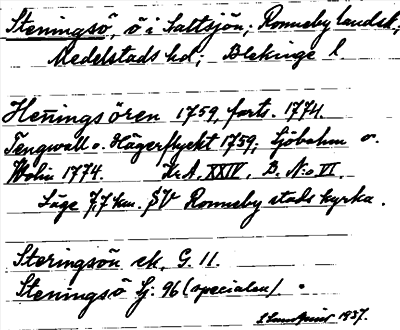 Steningsö, ö i Saltsjön; Ronneby landsk;
Medelstads hd; Blekinge l.
Heningsören 1759, forts. 1774.
Tengwall o. Hägerflyckt 1759; Sjöbohm o.
Wolin 1774. Kr.A. XXIV. B. N:o VI.
Läge 7,7 km. SV Ronneby stads kyrka.
Steringsön ek. G. 11.
Steningsö Sj: 96 (specialen) .
1937.